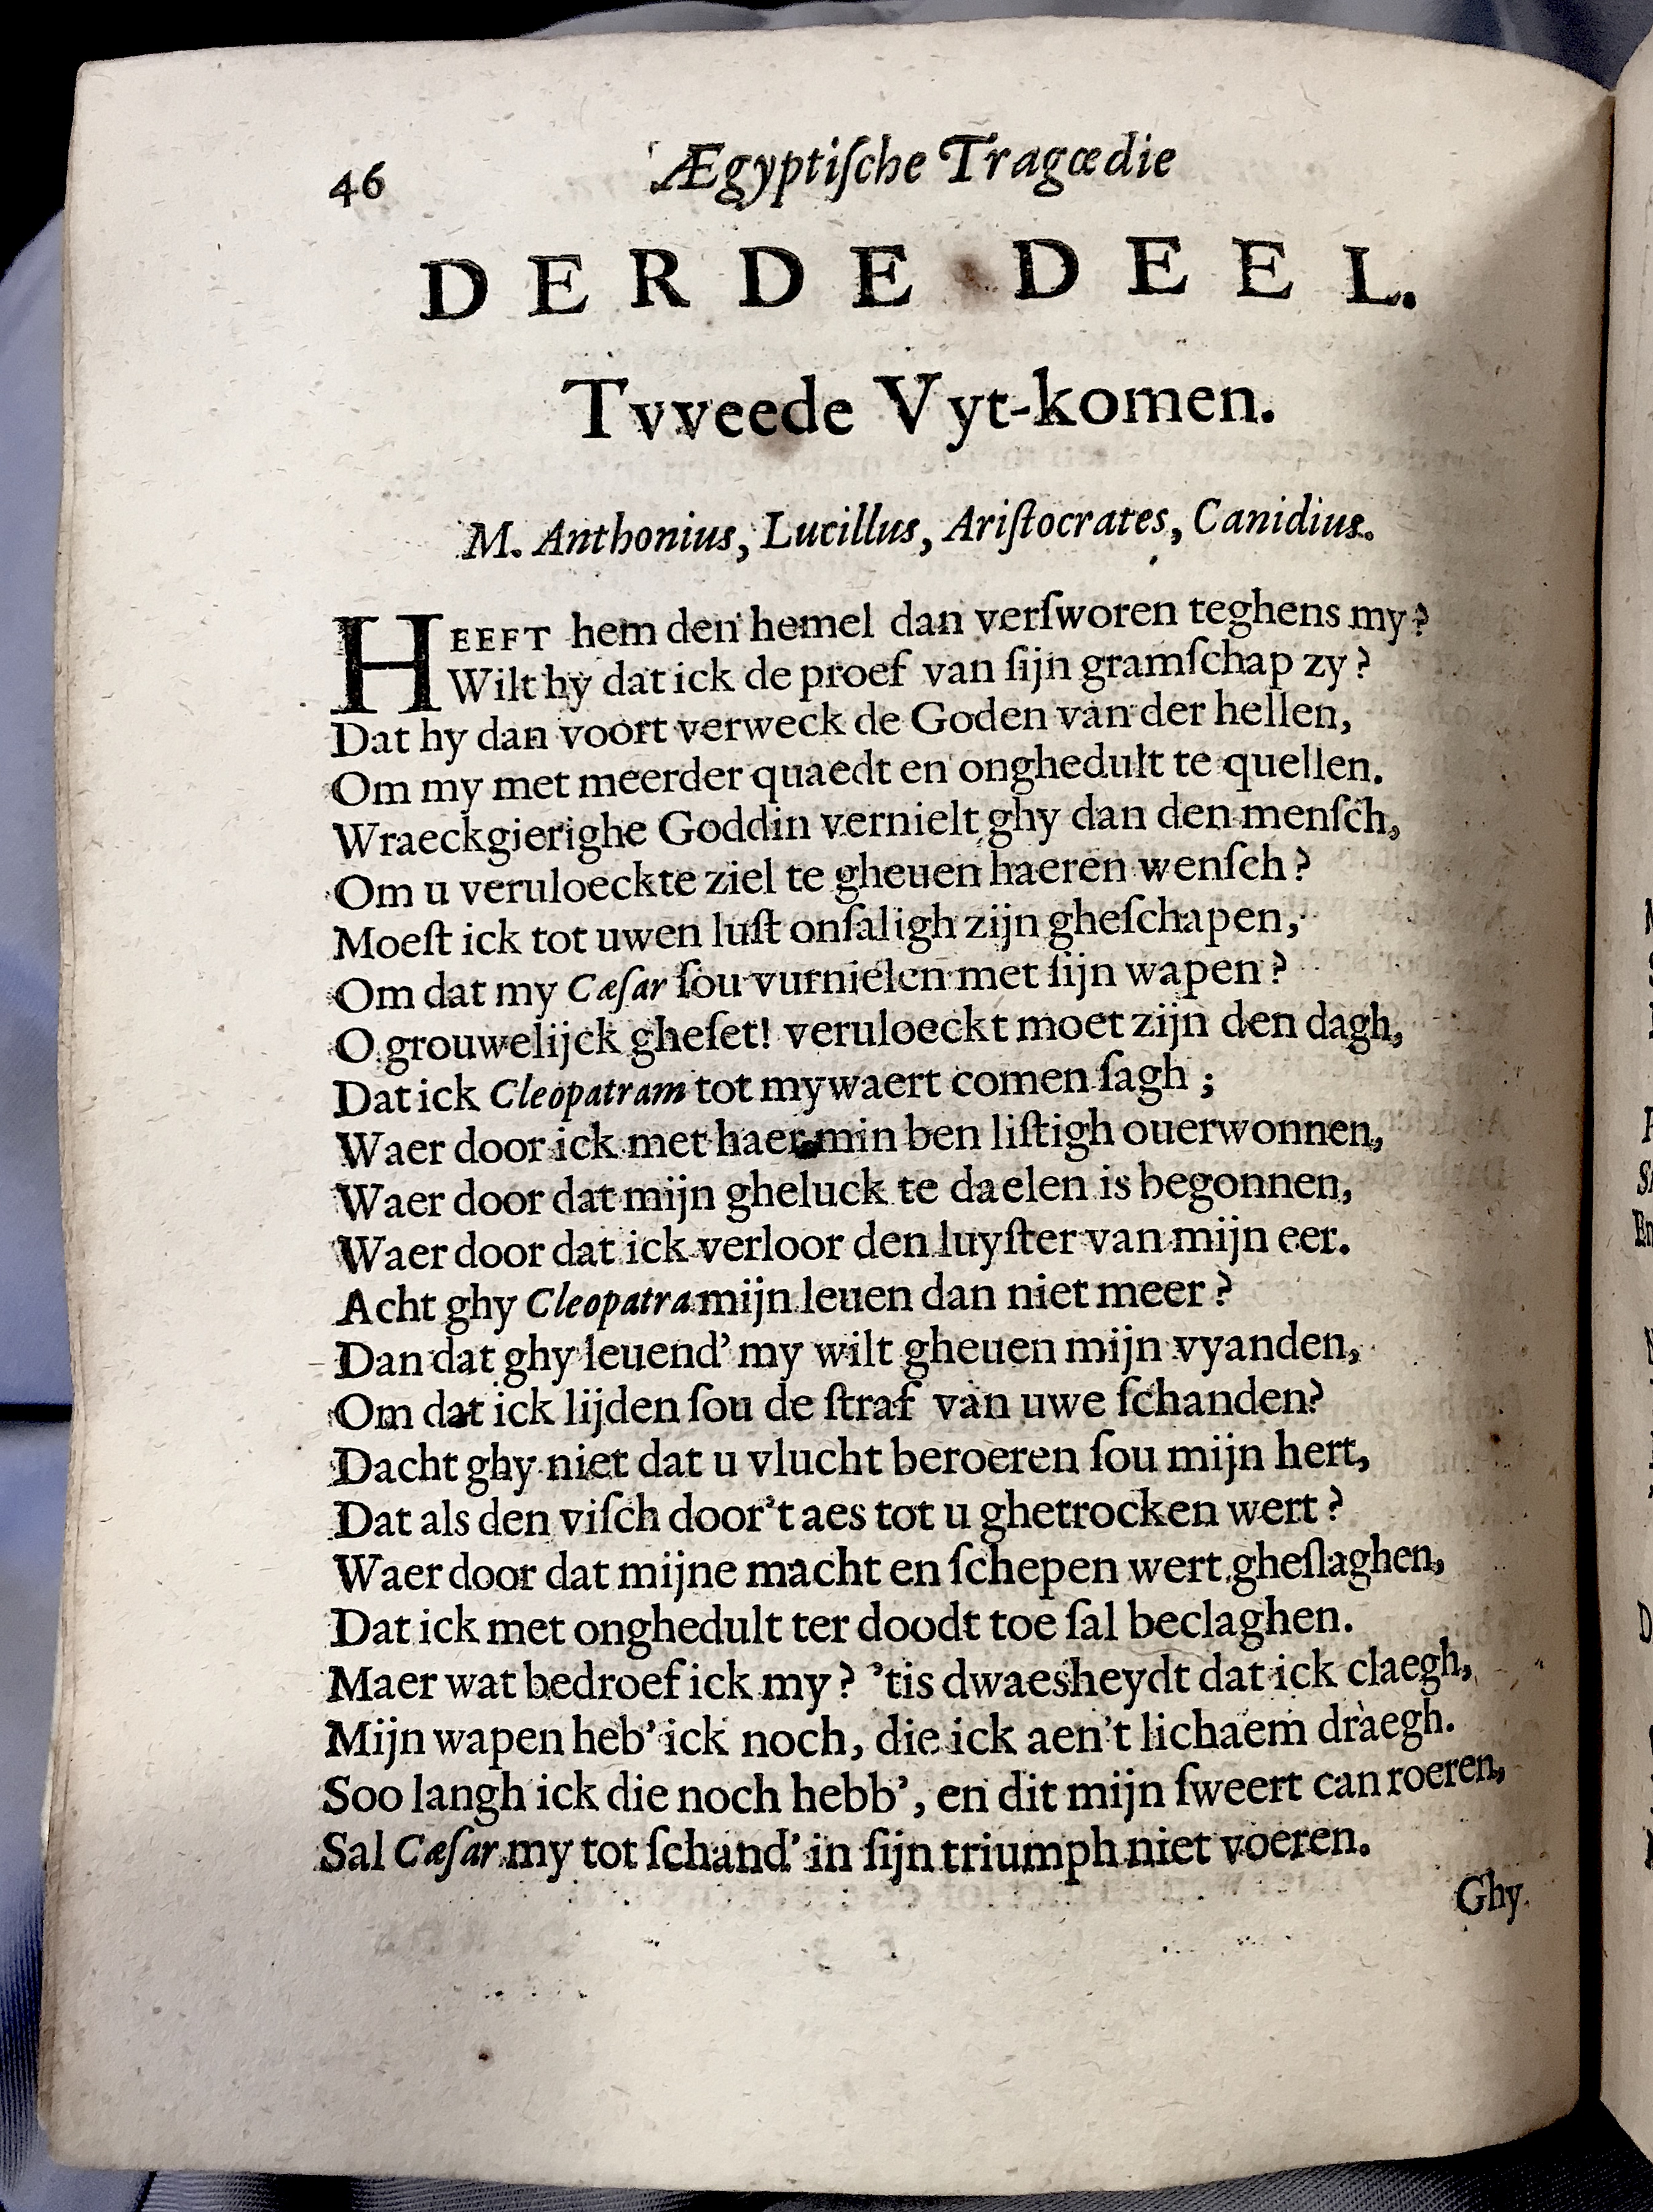 46 Ægyptiſche Tragœdie
DERDE DEEL.
Tvveede Vyt-komen.
M. Anthonius, Lucillus, Ariſtocrates, Canidius.
HEEFT hem den hemel dan verſworen teghens my?
Wilt hy dat ick de proef van ſijn gramſchap zy?
Dat hy dan voort verweck de Goden van der hellen,
Om my met meerder quaedt en onghedult te quellen.
Wraeckgierighe Goddin vernielt ghy dan den menſch,
Om u veruloeckte ziel te gheuen haeren wenſch?
Moeſt ick tot uwen luſt onſaligh zijn gheſchapen,
Om dat my Cæſar ſou vurnielen met ſijn wapen?
O grouwelijck gheſet! veruloeckt moet zijn den dagh,
Dat ick Cleopatram tot mywaert comen ſagh;
Waer door ick met haer min ben liſtigh ouerwonnen,
Waer door dat mijn gheluck te daelen is begonnen,
Waer door dat ick verloor den luyſter van mijn eer.
Acht ghy Cleopatra mijn leuen dan niet meer?
Dan dat ghy leuend’ my wilt gheuen mijn vyanden,
Om dat ick lijden ſou de ſtraf van uwe ſchanden?
Dacht ghy niet dat u vlucht beroeren ſou mijn hert,
Dat als den viſch door’t aes tot u ghetrocken wert?
Waer door dat mijne macht en ſchepen wert gheſlaghen,
Dat ick met onghedult ter doodt toe ſal beclaghen.
Maer wat bedroef ick my? ’tis dwaesheydt dat ick claegh,
Mijn wapen heb’ ick noch, die ick aen’t lichaem draegh.
Soo langh ick die noch hebb’, en dit mijn ſweert can roeren,
Sal Cæſar my tot ſchand’ in ſijn triumph niet voeren.
Ghy